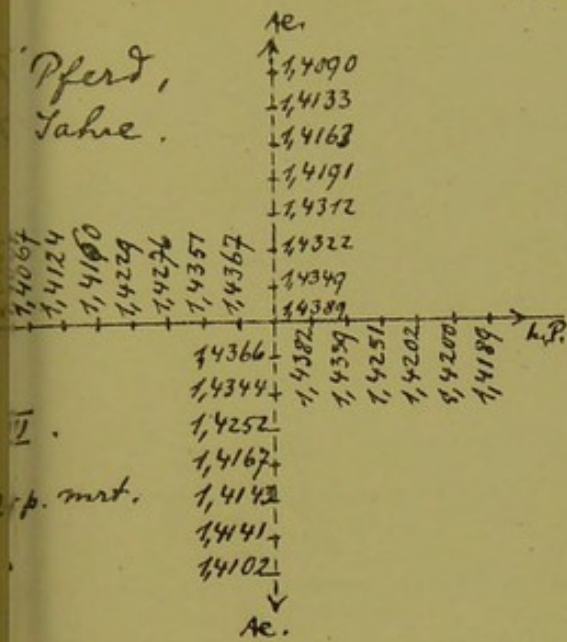 Ae.
Pferd,
Jahre.
1,4090
1,4133
1,4163
1,4191
1,4312
1,4322
1,4349
1,4389
1,4067
1,4124
1,4160
1,4229
1,4276
1,4351
1,4367
h.P.
1,4382
1,4339
1,4251
1,4202
1,4200
1,4189
1,4366
1,4344
1,4252
1,4167
1,4143
1,4141
1,4102
p. mrt.
Ae.